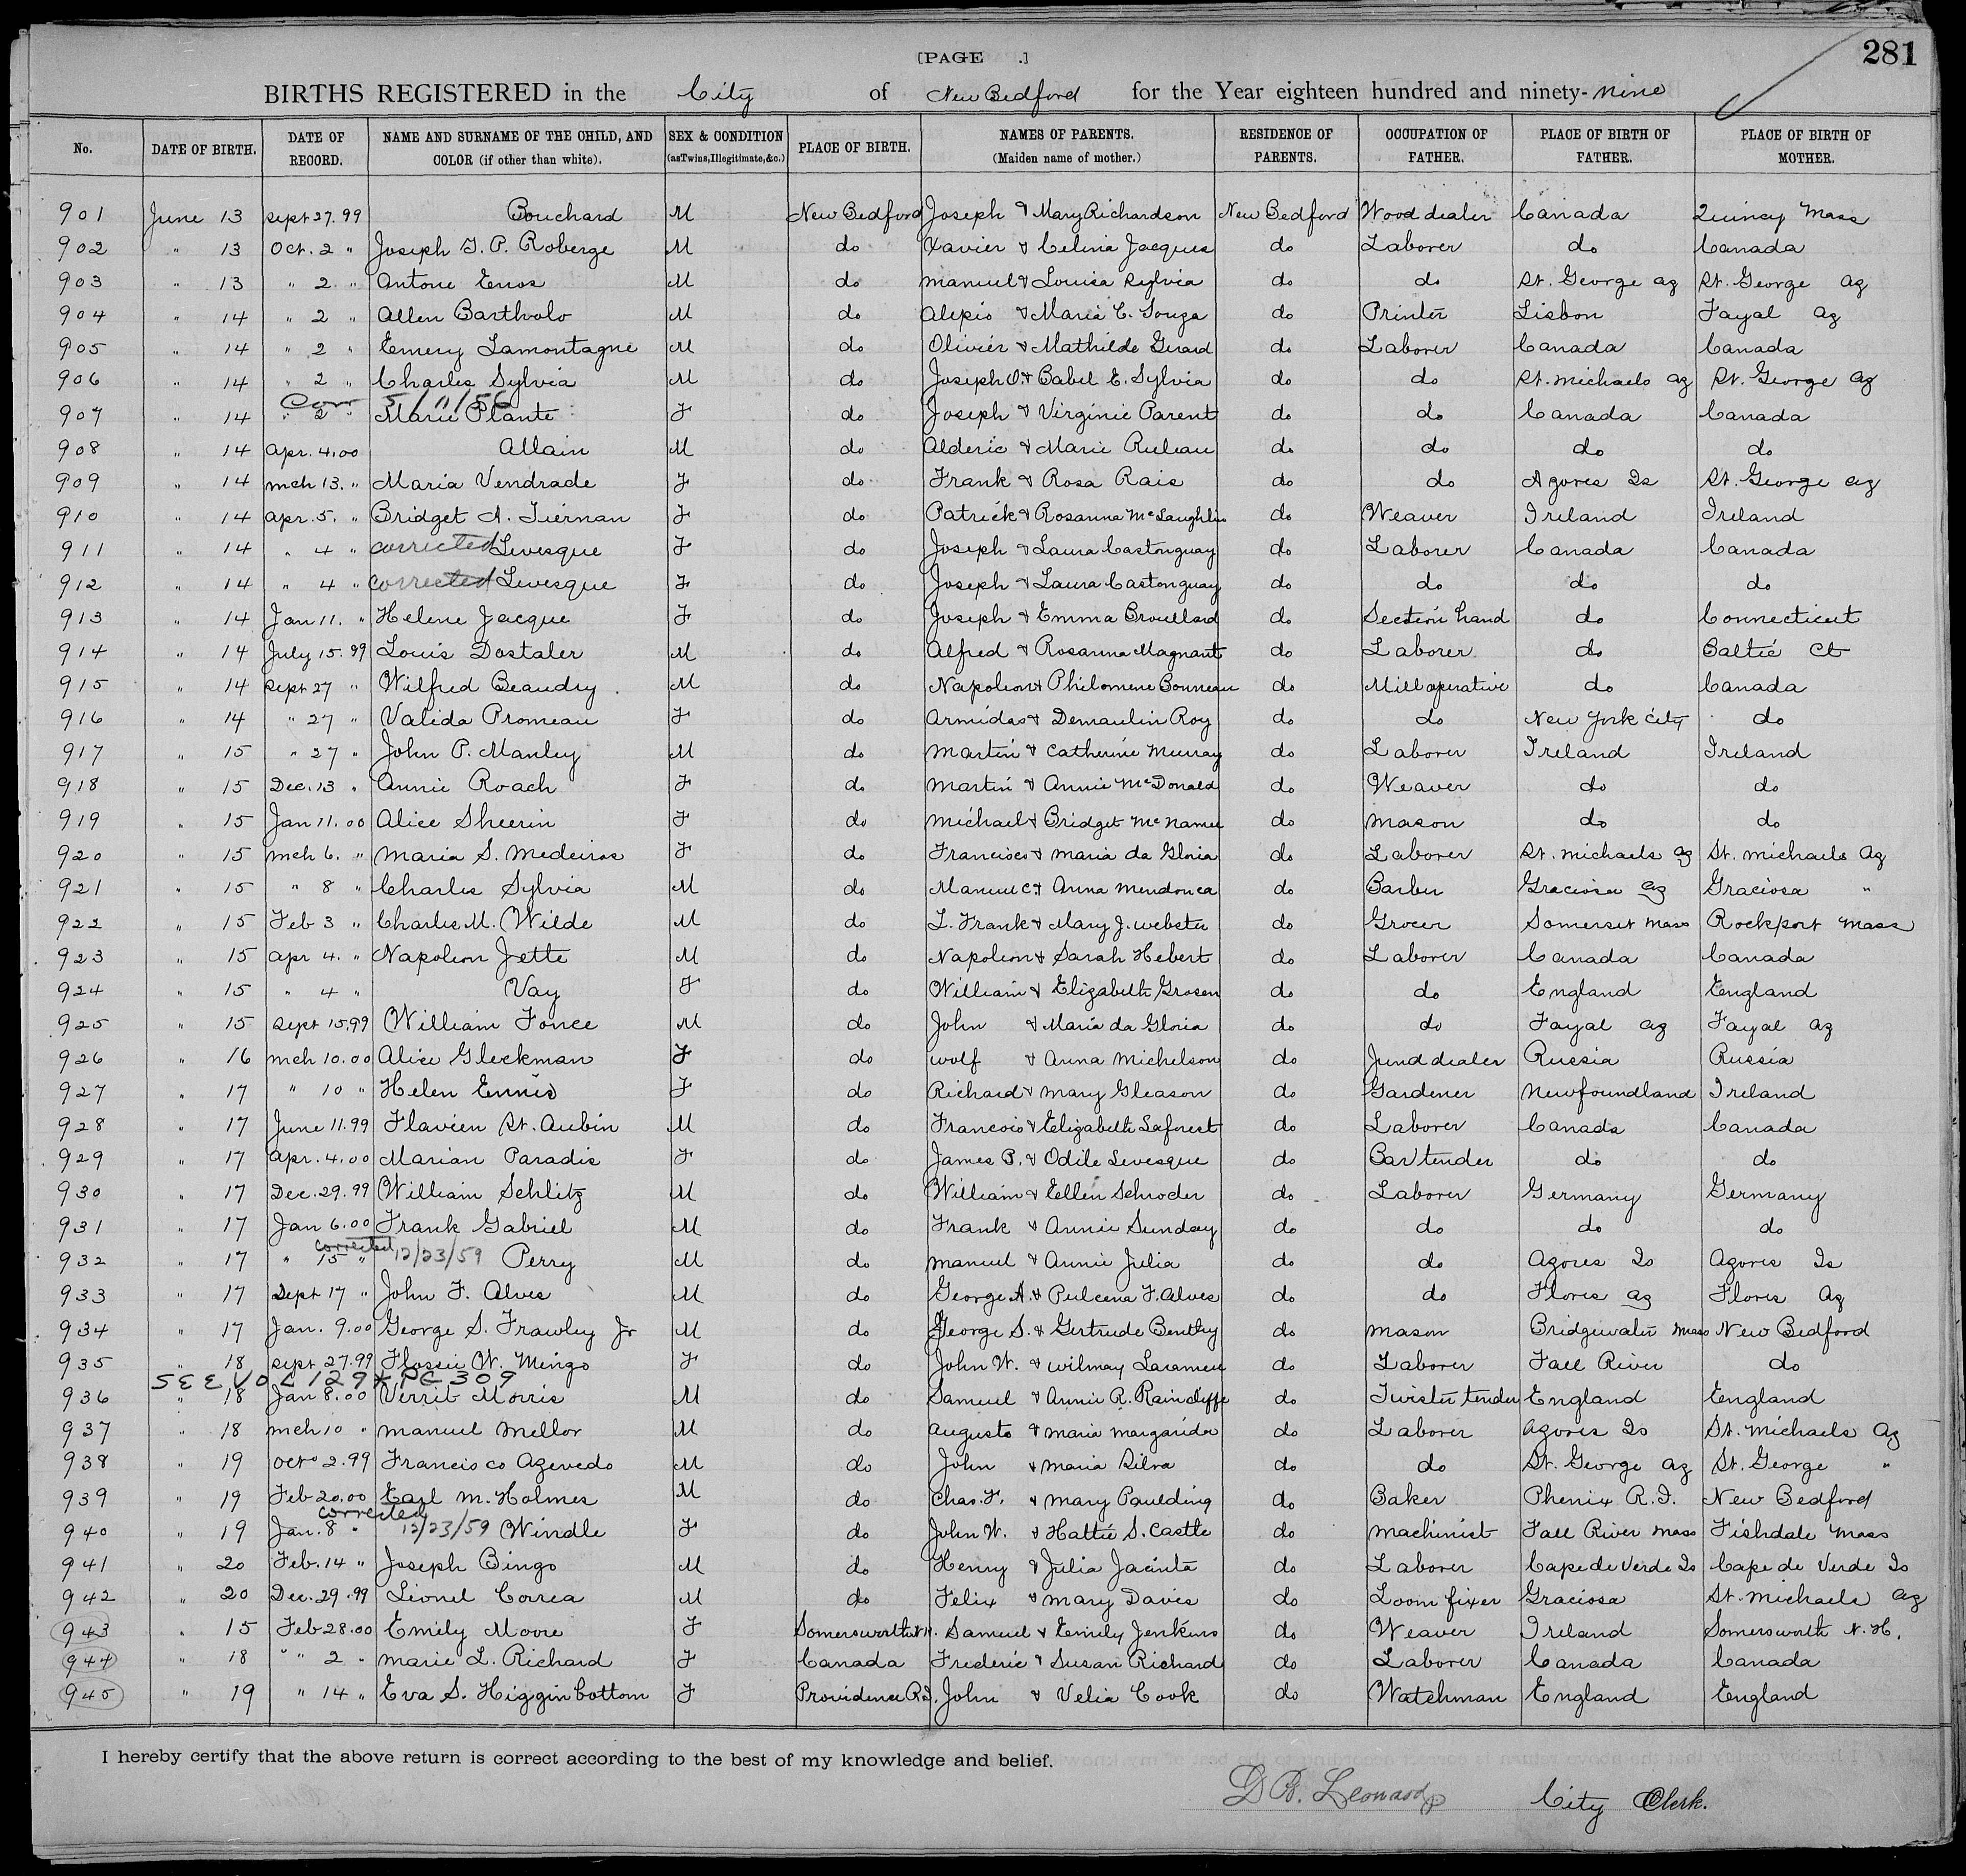 281
[PAGE .]
BIRTHS REGISTERED in the City of New Bedford for the Year eighteen hundred and ninety-nine
No. DATE OF BIRTH. DATE OF RECORD. NAME AND SURNAME OF THE CHILD, AND COLOR (if other than white). SEX & CONDITION (as Twins, Illegitimate, &c.) PLACE OF BIRTH. NAMES OF PARENTS. (Maiden name of mother.) RESIDENCE OF PARENTS. OCCUPATION OF FATHER. PLACE OF BIRTH OF FATHER. PLACE OF BIRTH OF MOTHER.
901 June 13 Sept 27.99 Bouchard M New Bedford Joseph & Mary Richardson New Bedford Wood dealer Canada Quincy Mass
902 " 13 Oct. 2 " Joseph T. P. Roberge M do Xavier & Celina Jacques do Laborer do Canada
903 " 13 " 2 " Antone Enos M do Manuel & Louisa Sylvia do do St. George Az St. George Az
904 " 14 " 2 " Allen Bartholo M do Alexis & Maria C. Souza do Printer Lisbon Fayal Az
905 " 14 " 2 " Emery Lamontagne M do Olivier & Mathilde Girard do Laborer Canada Canada
906 " 14 " 2 " Charles Sylvia M do Joseph O. & Babel E. Sylvia do do St. Michaels Az St. George Az
Corr 5/11/56
907 " 14 " 2 " Marie Plante F do Joseph & Virginie Parent do do Canada Canada
908 " 14 Apr. 4.00 Allain M do Alderic & Marie Ruleau do do do do
909 " 14 Mch 13. " Maria Vendrade F do Frank & Rosa Rais do do Azores Is St. George Az
910 " 14 Apr. 5. " Bridget A. Tiernan F do Patrick & Rosanna McLaughlin do Weaver Ireland Ireland
911 " 14 " 4 " corrected Levesque F do Joseph & Laura Castonguay do Laborer Canada Canada
912 " 14 " 4 " corrected Levesque F do Joseph & Laura Castonguay do do do do
913 " 14 Jan 11. " Helene Jacque F do Joseph & Emma Broullard do Section hand do Connecticut
914 " 14 July 15.99 Louis Dostaler M do Alfred & Rosanna Magnant do Laborer do Baltic Ct
915 " 14 Sept 27 " Wilfred Beaudry M do Napoleon & Philomene Bonneau do Mill operative do Canada
916 " 14 " 27 " Valida Promeau F do Armidas & Demaulin Roy do do New York City do
917 " 15 " 27 " John P. Manley M do Martin & Catherine Murray do Laborer Ireland Ireland
918 " 15 Dec. 13 " Annie Roach F do Martin & Annie McDonald do Weaver do do
919 " 15 Jan 11.00 Alice Sheerin F do Michael & Bridget McNamee do Mason do do
920 " 15 Mch 6. " Maria S. Medeiros F do Francisco & Maria da Gloria do Laborer St. Michaels Az St. Michaels Az
921 " 15 " 8 " Charles Sylvia M do Manuel C. & Anna Mendonca do Barber Graciosa Az Graciosa "
922 " 15 Feb 3 " Charles M. Wilde M do L. Frank & Mary J. Webster do Grocer Somerset Mass Rockport Mass
923 " 15 Apr 4. " Napoleon Jette M do Napoleon & Sarah Hebert do Laborer Canada Canada
924 " 15 " 4 " Vay F do William & Elizabeth Grosen do do England England
925 " 15 Sept 15.99 William Fonce M do John & Maria da Gloria do do Fayal Az Fayal Az
926 " 16 Mch 10.00 Alice Gleckman F do Wolf & Anna Michelson do Junddealer Russia Russia
927 " 17 " 10 " Helen Ennis F do Richard & Mary Gleason do Gardener Newfoundland Ireland
928 " 17 June 11.99 Flavien St. Aubin M do Francois & Elizabeth Laforest do Laborer Canada Canada
929 " 17 Apr. 4.00 Marian Paradis F do James P. & Odile Levesque do Bartender do do
930 " 17 Dec. 29.99 William Schlitz M do William & Ellen Schroder do Laborer Germany Germany
931 " 17 Jan 6.00 Frank Gabriel M do Frank & Annie Sunday do do do do
corrected
932 " 17 " 15 " 12/23/59 Perry M do Manuel & Annie Julia do do Azores Is Azores Is
933 " 17 Sept 17 " John F. Alves M do George A. & Pulcena F. Alves do do Flores Az Flores Az
934 " 17 Jan. 9.00 George S. Frawley Jr M do George S. & Gertrude Bentley do Mason Bridgewater Mass New Bedford
935 " 18 Sept 27.99 Flossie W. Mingo F do John W. & Wilmay Laramee do Laborer Fall River do
SEE VOL 129 * PG 309
936 " 18 Jan 8.00 Verrit Morris M do Samuel & Annie R. Raincliffe do Twister tender England England
937 " 18 Mch 10 " Manuel Mellor M do Augusto & Maria Margarida do Laborer Azores Is St. Michaels Az
938 " 19 Oct 2.99 Francisco Azevedo M do John & Maria Silva do do St. George Az St. George "
939 " 19 Feb 20.00 Earl M. Holmes M do Chas. F. & Mary Paulding do Baker Phenix R.I. New Bedford
corrected
940 " 19 Jan. 8 " 12/23/59 Windle F do John W. & Hattie S. Castle do Machinist Fall River Mass Fishdale Mass
941 " 20 Feb. 14 " Joseph Bingo M do Henry & Julia Jacinta do Laborer Cape de Verde Is Cape de Verde Is
942 " 20 Dec. 29.99 Lionel Correa M do Felix & Mary Davis do Loom fixer Graciosa St. Michaels Az
943 " 15 Feb 28.00 Emily Moore F Somersworth N.H. Samuel & Emily Jenkins do Weaver Ireland Somersworth N.H.
944 " 18 " " 2 " Marie L. Richard F Canada Frederic & Susan Richard do Laborer Canada Canada
945 " 19 " 14 " Eva S. Higginbottom F Providence R.I. John & Velia Cook do Watchman England England
I hereby certify that the above return is correct according to the best of my knowledge and belief.
D B. Leonard City Clerk.